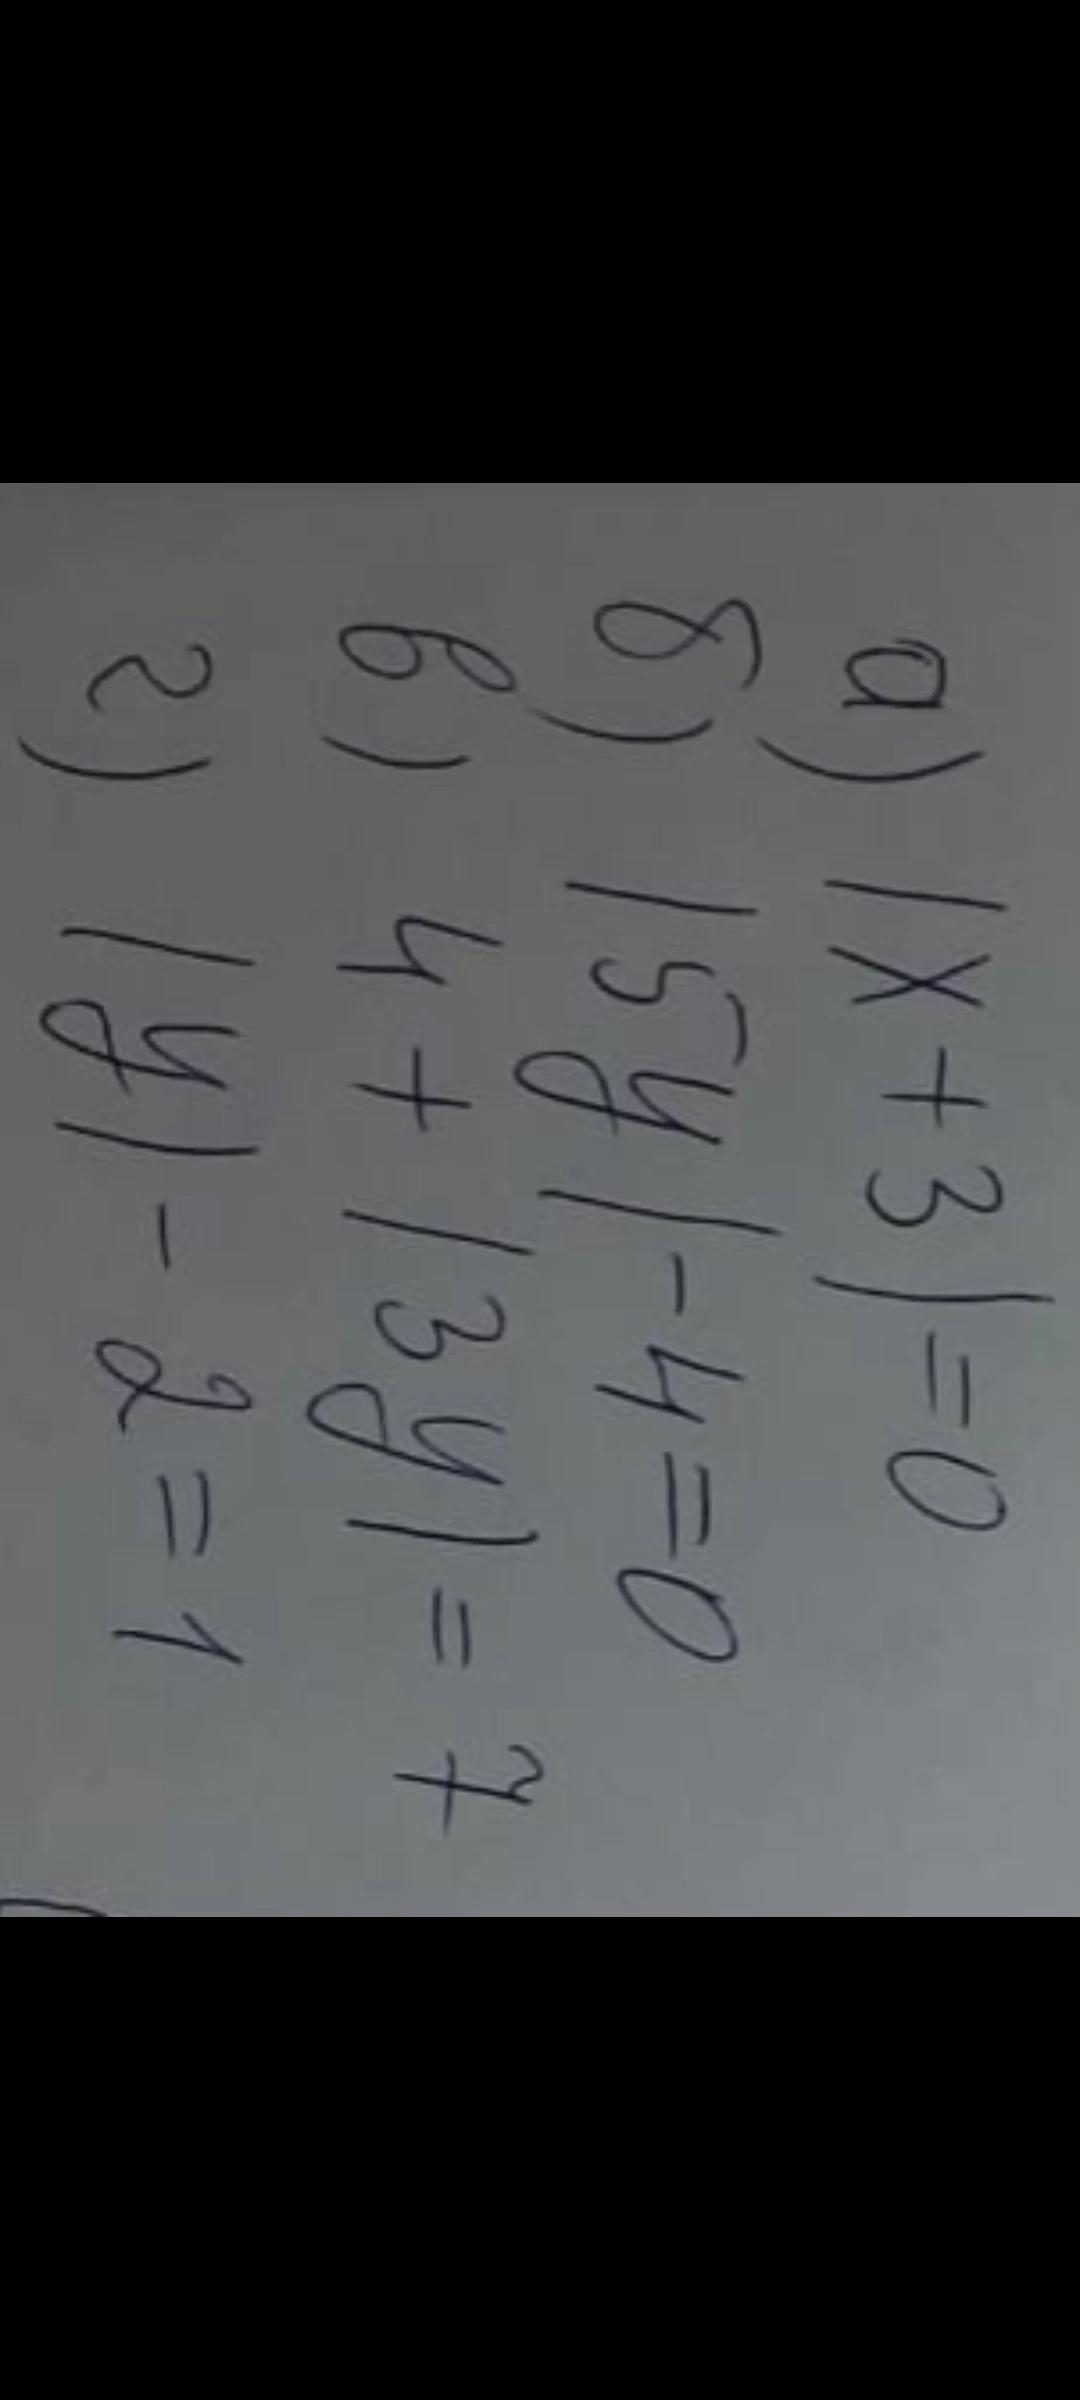 а) |x+3|=0
б) |5y|-4=0
в) 4+|3y|=7
г) |y|-2=1